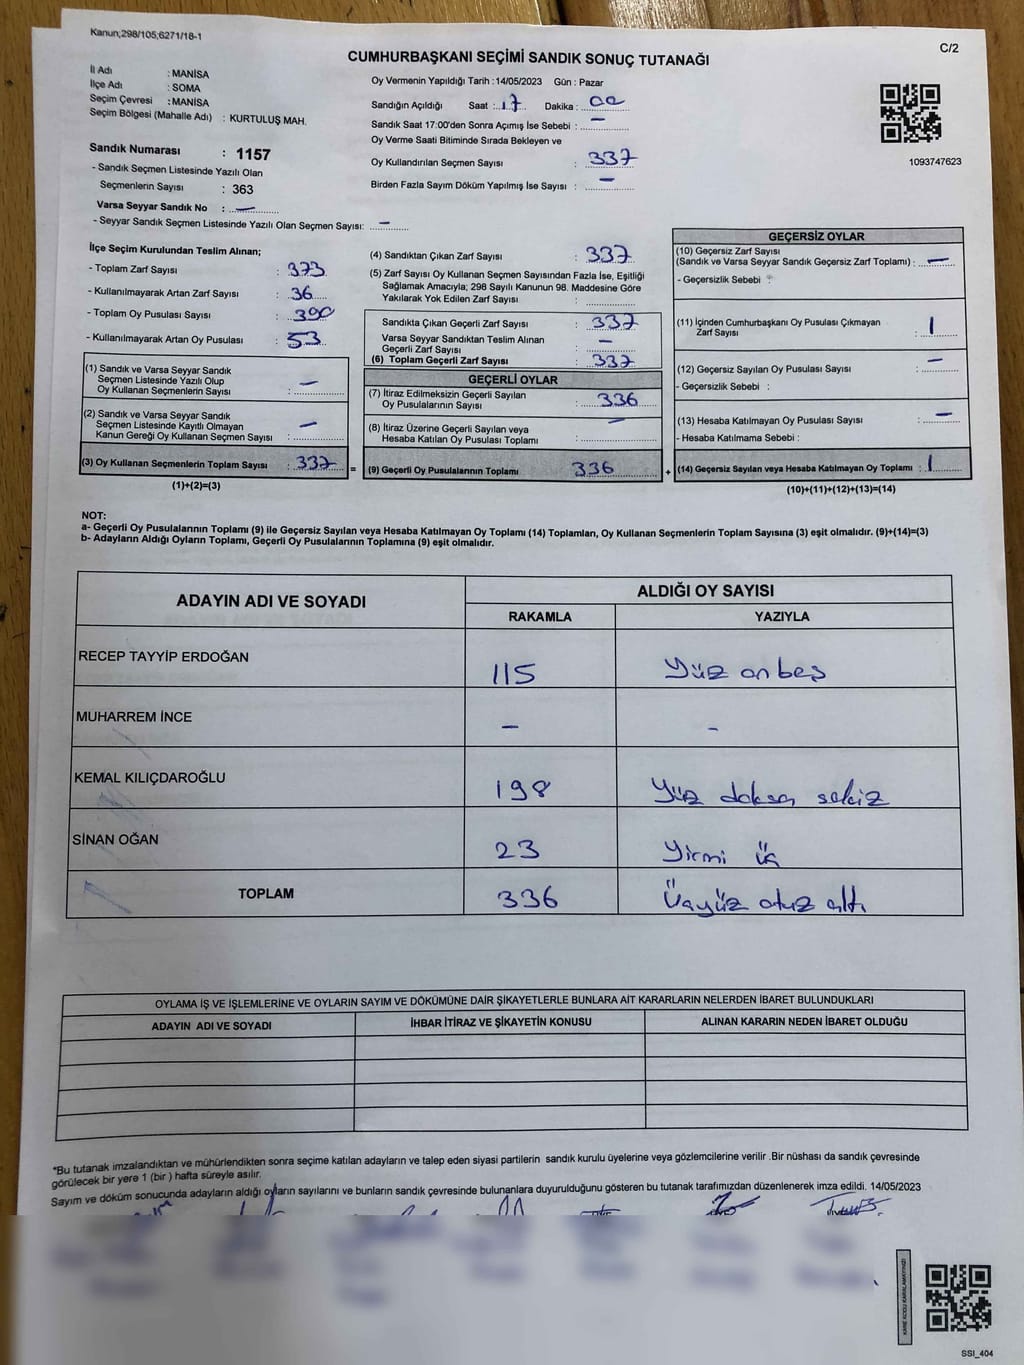 Kanun;298/105;6271/18-1
C/2
CUMHURBAŞKANI SEÇİMİ SANDIK SONUÇ TUTANAĞI
İl Adı : MANİSA
İlçe Adı : SOMA
Seçim Çevresi : MANİSA
Seçim Bölgesi (Mahalle Adı) : KURTULUŞ MAH.
Sandık Numarası : 1157
- Sandık Seçmen Listesinde Yazılı Olan
Seçmenlerin Sayısı : 363
Varsa Seyyar Sandık No : —
- Seyyar Sandık Seçmen Listesinde Yazılı Olan Seçmen Sayısı: —
Oy Vermenin Yapıldığı Tarih : 14/05/2023 Gün : Pazar
Sandığın Açıldığı Saat : 17 Dakika : 00
Sandık Saat 17:00'den Sonra Açımış İse Sebebi : —
Oy Verme Saati Bitiminde Sırada Bekleyen ve
Oy Kullandırılan Seçmen Sayısı : 337
Birden Fazla Sayım Döküm Yapılmış İse Sayısı : —
1093747623
İlçe Seçim Kurulundan Teslim Alınan;
- Toplam Zarf Sayısı : 373
- Kullanılmayarak Artan Zarf Sayısı : 36
- Toplam Oy Pusulası Sayısı : 390
- Kullanılmayarak Artan Oy Pusulası : 53
(1) Sandık ve Varsa Seyyar Sandık
Seçmen Listesinde Yazılı Olup
Oy Kullanan Seçmenlerin Sayısı : —
(2) Sandık ve Varsa Seyyar Sandık
Seçmen Listesinde Kayıtlı Olmayan
Kanun Gereği Oy Kullanan Seçmen Sayısı : —
(3) Oy Kullanan Seçmenlerin Toplam Sayısı : 337
(1)+(2)=(3)
(4) Sandıktan Çıkan Zarf Sayısı : 337
(5) Zarf Sayısı Oy Kullanan Seçmen Sayısından Fazla İse, Eşitliği
Sağlamak Amacıyla; 298 Sayılı Kanunun 98. Maddesine Göre
Yakılarak Yok Edilen Zarf Sayısı :
Sandıkta Çıkan Geçerli Zarf Sayısı : 337
Varsa Seyyar Sandıktan Teslim Alınan
Geçerli Zarf Sayısı : —
(6) Toplam Geçerli Zarf Sayısı : 337
GEÇERLİ OYLAR
(7) İtiraz Edilmeksizin Geçerli Sayılan
Oy Pusulalarının Sayısı : 336
(8) İtiraz Üzerine Geçerli Sayılan veya
Hesaba Katılan Oy Pusulası Toplamı : —
= (9) Geçerli Oy Pusulalarının Toplamı 336
GEÇERSİZ OYLAR
(10) Geçersiz Zarf Sayısı
(Sandık ve Varsa Seyyar Sandık Geçersiz Zarf Toplamı) : —
- Geçersizlik Sebebi :
(11) İçinden Cumhurbaşkanı Oy Pusulası Çıkmayan
Zarf Sayısı : 1
(12) Geçersiz Sayılan Oy Pusulası Sayısı : —
- Geçersizlik Sebebi :
(13) Hesaba Katılmayan Oy Pusulası Sayısı : —
- Hesaba Katılmama Sebebi :
+ (14) Geçersiz Sayılan veya Hesaba Katılmayan Oy Toplamı : 1
(10)+(11)+(12)+(13)=(14)
NOT:
a- Geçerli Oy Pusulalarının Toplamı (9) ile Geçersiz Sayılan veya Hesaba Katılmayan Oy Toplamı (14) Toplamları, Oy Kullanan Seçmenlerin Toplam Sayısına (3) eşit olmalıdır. (9)+(14)=(3)
b- Adayların Aldığı Oyların Toplamı, Geçerli Oy Pusulalarının Toplamına (9) eşit olmalıdır.
ADAYIN ADI VE SOYADI ALDIĞI OY SAYISI
RAKAMLA YAZIYLA
RECEP TAYYİP ERDOĞAN 115 Yüz onbeş
MUHARREM İNCE — —
KEMAL KILIÇDAROĞLU 198 Yüz doksan sekiz
SİNAN OĞAN 23 Yirmi üç
TOPLAM 336 Üçyüz otuz altı
OYLAMA İŞ VE İŞLEMLERİNE VE OYLARIN SAYIM VE DÖKÜMÜNE DAİR ŞİKAYETLERLE BUNLARA AİT KARARLARIN NELERDEN İBARET BULUNDUKLARI
ADAYIN ADI VE SOYADI İHBAR İTİRAZ VE ŞİKAYETİN KONUSU ALINAN KARARIN NEDEN İBARET OLDUĞU
*Bu tutanak imzalandıktan ve mühürlendikten sonra seçime katılan adayların ve talep eden siyasi partilerin sandık kurulu üyelerine veya gözlemcilerine verilir .Bir nüshası da sandık çevresinde
görülecek bir yere 1 (bir ) hafta süreyle asılır.
Sayım ve döküm sonucunda adayların aldığı oyların sayılarını ve bunların sandık çevresinde bulunanlara duyurulduğunu gösteren bu tutanak tarafımızdan düzenlenerek imza edildi. 14/05/2023
KARE KODU KARALAMAYINIZ!
SSI_404